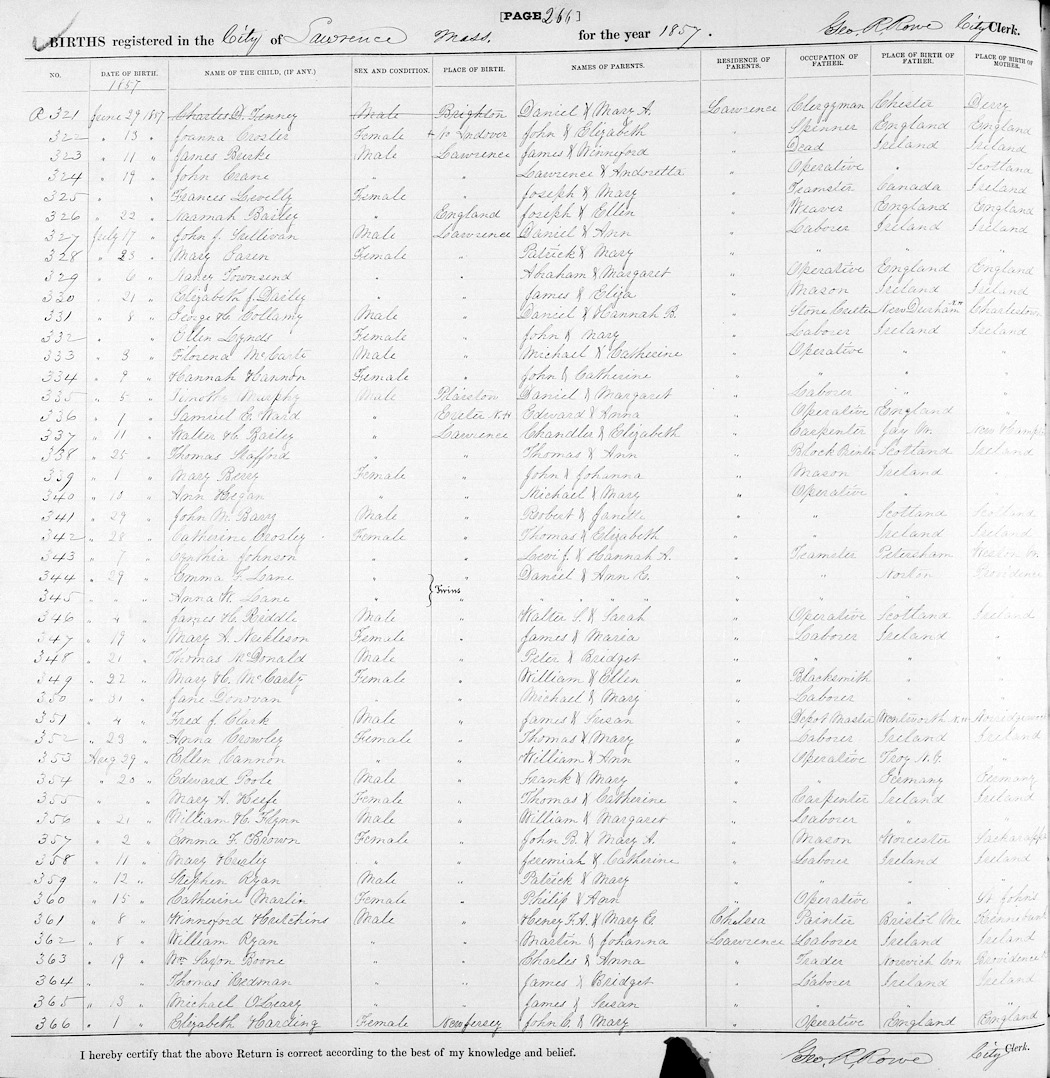 [PAGE 266]
BIRTHS registered in the City of Lawrence Mass. for the year 1857. Geo. R. Rowe City Clerk.
NO. DATE OF BIRTH. NAME OF THE CHILD, (IF ANY.) SEX AND CONDITION. PLACE OF BIRTH. NAMES OF PARENTS. RESIDENCE OF PARENTS. OCCUPATION OF FATHER. PLACE OF BIRTH OF FATHER. PLACE OF BIRTH OF MOTHER.
1857
321 June 29 1857 Charles D. Tenney Male Brighton Daniel & Mary A. Lawrence Clergyman Chester Derry
322 " 13 " Joanna Crosler Female No Andover John & Elizabeth " Spinner England England
323 " 11 " James Burke Male Lawrence James & Winneford " Dead Ireland Ireland
324 " 19 " John Crane " " Lawrence & Andoretta " Operative " Scotland
325 " " " Frances Levelly Female " Joseph & Mary " Teamster Canada Ireland
326 " 22 " Naamah Bailey " England Joseph & Ellen " Weaver England England
327 July 17 " John J. Sullivan Male Lawrence Daniel & Ann " Laborer Ireland Ireland
328 " 23 " Mary Caren Female " Patrick & Mary " " " "
329 " 6 " Nancy Townsend " " Abraham & Margaret " Operative England England
320 " 21 " Elizabeth J. Dailey " " James & Eliza " Mason Ireland Ireland
331 " 8 " George H. Collamy Male " Daniel & Hannah B. " Stone Cutter New Durham N.H. Charlestown
332 " " " Ellen Lynds Female " John & Mary " Laborer Ireland Ireland
333 " 3 " Florena McCarty Male " Michael & Catherine " Operative " "
334 " 9 " Hannah Hannon Female " John & Catherine " " " "
335 " 5 " Timothy Murphy Male Plaistow Daniel & Margaret " Laborer " "
336 " 1 " Samuel E. Ward " Exeter N.H Edward & Anna " Operative England
337 " 11 " Walter H. Bailey " Lawrence Chandler & Elizabeth " Carpenter Jay New Hamp
338 " 25 " Thomas Stafford " " Thomas & Ann " Block Printer Scotland Ireland
339 " 1 " Mary Berry Female " John & Johanna " Mason Ireland "
340 " 10 " Ann Hegan " " Michael & Mary " Operative " "
341 " 29 " John M. Barry Male " Robert & Janett " " Scotland Scotland
342 " 28 " Catherine Crosley Female " Thomas & Elizabeth " " Ireland Ireland
343 " 7 " Cynthia Johnson " " Levi J. & Hannah A. " Teamster Petersham Weston
344 " 29 " Emma F. Lane " " Daniel & Ann E. " " Norton Providence
345 " " " Anna W. Lane " Twins " " " " " " " "
346 " 4 " James H. Biddle Male " Walter S. & Sarah " Operative Scotland Ireland
347 " 19 " Mary A. Neikleson Female " James & Maria " Laborer Ireland "
348 " 21 " Thomas McDonald Male " Peter & Bridget " " " "
349 " 22 " Mary H. McCarty Female " William & Ellen " Blacksmith " "
350 " 31 " Jane Donovan " " Michael & Mary " Laborer " "
351 " 4 " Fred J. Clark Male " James & Susan " Depot Master Wentworth N.H Norridgewock
352 " 23 " Anna Crowley Female " Thomas & Mary " Laborer Ireland Ireland
353 Aug 29 " Ellen Cannon " " William & Ann " Operative Troy N.Y. "
354 " 20 " Edward Poole Male " Frank & Mary " " Germany Germany
355 " " " Mary A. Keefe Female " Thomas & Catherine " Carpenter Ireland Ireland
356 " 21 " William H. Flynn Male " William & Margaret " Laborer " "
357 " 2 " Emma F. Brown Female " John B. & Mary A. " Mason Worcester Sackarappa
358 " 11 " Mary Hurley " " Jeremiah & Catherine " Laborer Ireland Ireland
359 " 12 " Stephen Ryan Male " Patrick & Mary " " " "
360 " 15 " Catherine Martin Female " Philip & Ann " Operative " St Johns
361 " 8 " Winneford Hutchins Male " Henry F.A. & Mary E. Chelsea Painter Bristol Me Kennebunk
362 " 8 " William Ryan " " Martin & Johanna Lawrence Laborer Ireland Ireland
363 " 19 " Wm Saxon Boone " " Charles & Anna " Trader Norwich Con Providence
364 " " " Thomas Redman " " James & Bridget " Laborer Ireland Ireland
365 " 13 " Michael O'Leary " " James & Susan " " " "
366 " 1 " Elizabeth Harding Female New Jersey John C. & Mary " Operative England England
I hereby certify that the above Return is correct according to the best of my knowledge and belief. Geo. R. Rowe City Clerk.